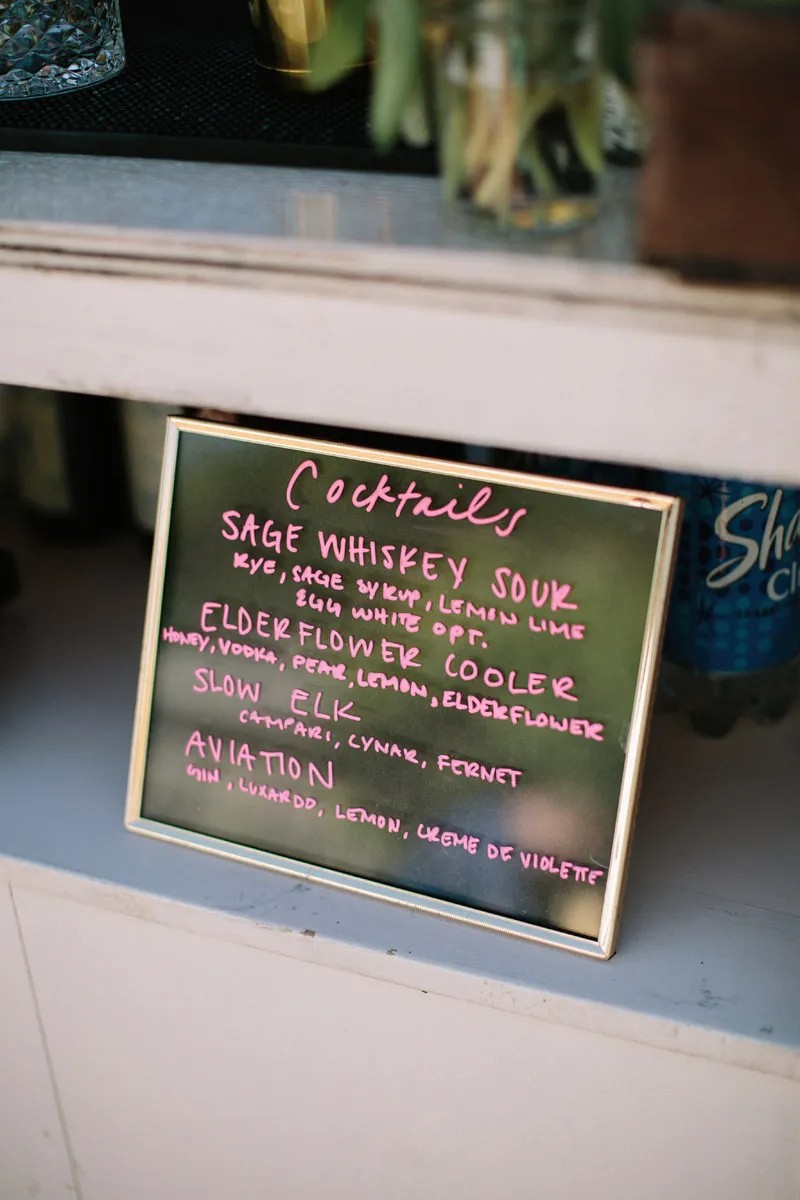 Cocktails
SAGE WHISKEY SOUR
RYE, SAGE SYRUP, LEMON LIME
EGG WHITE OPT.
ELDERFLOWER COOLER
HONEY, VODKA, PEAR, LEMON, ELDERFLOWER
SLOW ELK
CAMPARI, CYNAR, FERNET
AVIATION
GIN, LUXARDO, LEMON, CREME DE VIOLETTE